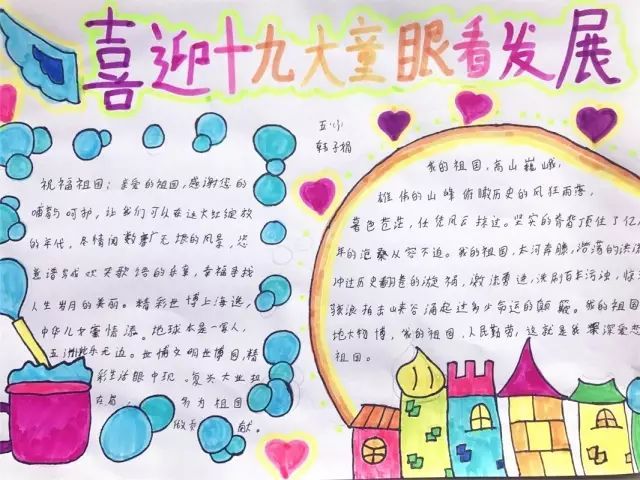 喜迎十九大童眼看发展
五小
韩子娟
祝福祖国：亲爱的祖国，感谢您的
哺育呵护，让我们可以在这火红绽放
的年代，尽情阅无垠的风景，您
意谱写成欢天歌语的乐章，幸福寻找
人生岁月的美丽。精彩世博上海滩，
中华儿女蓄情流。地球本是一家人，
五洲乐无边。世博文明世博园，精
彩生活眼中现。复兴大业担
在肩，多为祖国
做贡献。
我的祖国，高山巍峨，
雄伟的山峰俯瞰历史的风狂雨落，
暮色苍茫，任凭风云掠过。坚实的脊背顶住了亿万
年的沧桑从容不迫。我的祖国，大河奔腾，浩荡的洪流
冲过历史翻卷的漩涡，激流勇进，洗刷百年污浊，惊
骇浪拍击峡谷涌起过多少命运的颠簸。我的祖国
地大物博，我的祖国，人民勤劳，这就是我深爱
祖国。